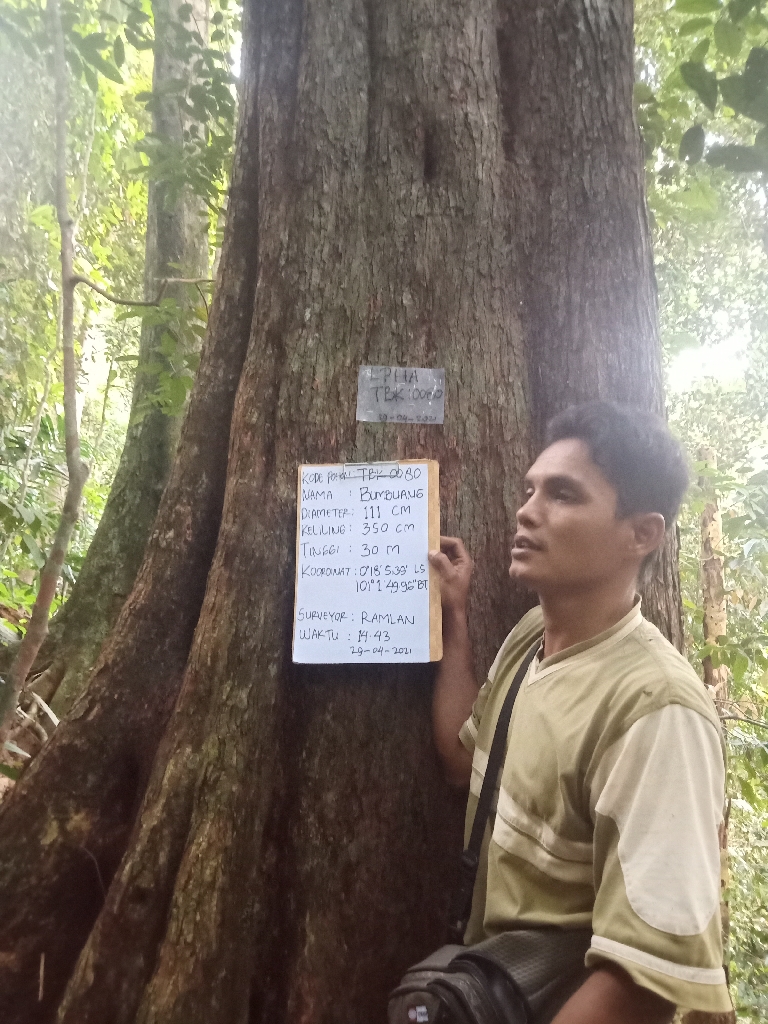 LPHA
TBK:0080
29-04-2021
KODE POHON: TBK 0080
NAMA : BUMBUANG
DIAMETER: 111 CM
KELILING: 350 CM
TINGGI : 30 M
KOORDINAT : 0°18'5.39" LS
101°1'49.96" BT
SURVEYOR : RAMLAN
WAKTU : 14:43
29-04-2021